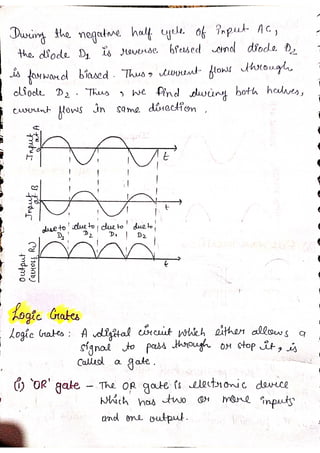 During the negative half cycle of input AC,
the diode D1 is reverse biased and diode D2
is forward biased. Thus, current flows through
diode D2. Thus, we find during both halves,
current flows in same direction.
Input at A
t
Input at B
t
due to D1
due to D2
due to D1
due to D2
Output (across RL)
t
Logic Gates
Logic Gates: A digital circuit which either allows a
signal to pass through or stop it, is
called a gate.
(i) 'OR' gate - The OR gate is electronic device
which has two or more inputs
and one output.